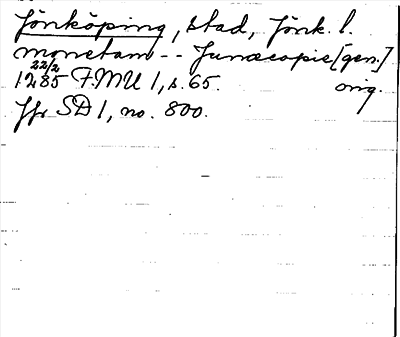 Jönköping, stad, Jönk. l.
monetam -- Junæcopie [gen.]
22/2
1285 FMU 1, s. 65. orig.
Jfr SD 1, no. 800.